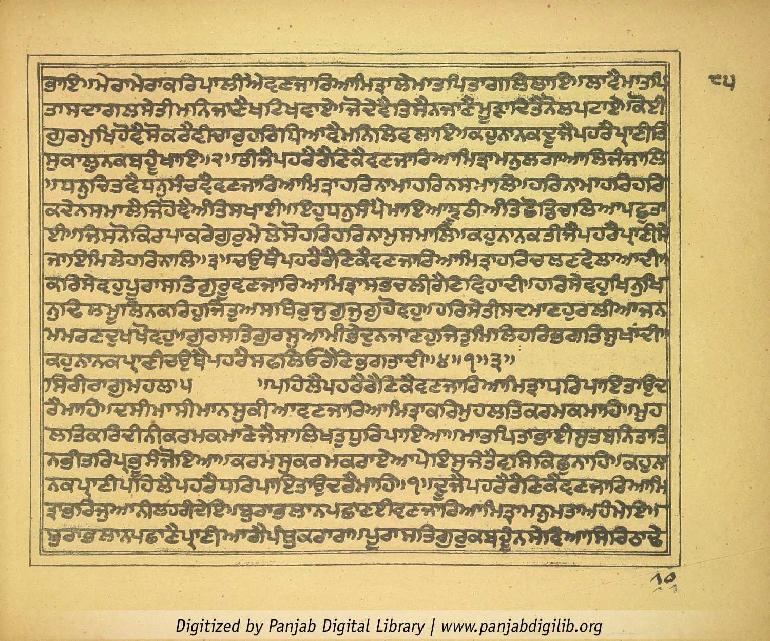 ਭਾਇ॥ਮੇਰਾਮੇਰਾਕਰਿਪਾਲੀਐਵਣਜਾਰਿਆਮਿਤ੍ਰਾਲੇਮਾਤਪਿਤਾਗਲਿਲਾਇ॥ਲਾਵੈਮਾਤਪਿ
ਤਾਸਦਾਗਲਸੇਤੀਮਨਿਜਾਣੈਖਟਿਖਵਾਏ॥ਜੋਦੇਵੈਤਿਸੈਨਜਾਣੈਮੂੜਾਦਿਤੇਨੋਲਪਟਾਏ॥ਕੋਈ
ਗੁਰਮੁਖਿਹੋਵੈਸੋਕਰੈਵੀਚਾਰੁਹਰਿਧਿਆਵੈਮਨਿਲਿਵਲਾਇ॥ਕਹੁਨਾਨਕਦੂਜੈਪਹਰੈਪ੍ਰਾਣੀਤਿ
ਸੁਕਾਲੁਨਕਬਹੂੰਖਾਇ॥੨॥ਤੀਜੈਪਹਰੈਰੈਣਿਕੈਵਣਜਾਰਿਆਮਿਤ੍ਰਾਮਨੁਲਗਾਆਲਿਜੰਜਾਲਿ
॥ਧਨੁਚਿਤਵੈਧਨੁਸੰਚਵੈਵਣਜਾਰਿਆਮਿਤ੍ਰਾਹਰਿਨਾਮਾਹਰਿਨਸਮਾਲਿ॥ਹਰਿਨਾਮਾਹਰਿਹਰਿ
ਕਦੇਨਸਮਾਲੈਜਿਹੋਵੈਅੰਤਿਸਖਾਈ॥ਇਹੁਧਨੁਸੰਪੈਮਾਇਆਝੂਠੀਅੰਤਿਛੋਡਿਚਲਿਆਪਛੁਤਾ
ਈ॥ਜਿਸਨੋਕਿਰਪਾਕਰੇਗੁਰੁਮੇਲੇਸੋਹਰਿਹਰਿਨਾਮੁਸਮਾਲਿ॥ਕਹੁਨਾਨਕਤੀਜੈਪਹਰੈਪ੍ਰਾਣੀਸੇ
ਜਾਇਮਿਲੇਹਰਿਨਾਲਿ॥੩॥ਚਉਥੈਪਹਰੈਰੈਣਿਕੈਵਣਜਾਰਿਆਮਿਤ੍ਰਾਹਰਿਚਲਣਵੇਲਾਆਦੀ॥
ਕਰਿਸੇਵਹੁਪੂਰਾਸਤਿਗੁਰੂਵਣਜਾਰਿਆਮਿਤ੍ਰਾਸਭਚਲੀਰੈਣਿਵਿਹਾਦੀ॥ਹਰਿਸੇਵਹੁਖਿਨੁਖਿ
ਨੁਢਿਲਮੂਲਿਨਕਰਿਹੁਜਿਤੁਅਸਥਿਰੁਜੁਗੁਜੁਗੁਹੋਵਹੁ॥ਹਰਿਸੇਤੀਸਦਮਾਣਹੁਰਲੀਆਜਨ
ਮਮਰਣਦੁਖਖੋਵਹੁ॥ਗੁਰਸਤਿਗੁਰਸੁਆਮੀਭੇਦੁਨਜਾਣਹੁਜਿਤੁਮਿਲਿਹਰਿਭਗਤਿਸੁਖਾਂਦੀ॥
ਕਹੁਨਾਨਕਪ੍ਰਾਣੀਚਉਥੈਪਹਰੈਸਫਲਿਓਰੈਣਿਭਗਤਾਦੀ॥੪॥੧॥੩॥
ਸਿਰੀਰਾਗੁਮਹਲਾ੫ ॥ਪਹਿਲੈਪਹਰੈਰੈਣਿਕੈਵਣਜਾਰਿਆਮਿਤ੍ਰਾਧਰਿਪਾਇਤਾਉਦ
ਰੈਮਾਹਿ॥ਦਸੀਮਾਸੀਮਾਨਸੁਕੀਆਵਣਜਾਰਿਆਮਿਤ੍ਰਾਕਰਿਮੁਹਲਤਿਕਰਮਕਮਾਹਿ॥ਮੁਹ
ਲਤਿਕਰਿਦੀਨੀਕਰਮਕਮਾਣੇਜੈਸਾਲਿਖਤੁਧੁਰਿਪਾਇਆ॥ਮਾਤਪਿਤਾਭਾਈਸੁਤਬਨਿਤਾਤਿ
ਨਭੀਤਰਿਪ੍ਰਭੂਸੰਜੋਇਆ॥ਕਰਮਸੁਕਰਮਕਰਾਏਆਪੇਇਸੁਜੰਤੈਵਸਿਕਿਛੁਨਾਹਿ॥ਕਹੁਨਾ
ਨਕਪ੍ਰਾਣੀਪਹਿਲੈਪਹਰੈਧਰਿਪਾਇਤਾਉਦਰੈਮਾਹਿ॥੧॥ਦੂਜੈਪਹਰੈਰੈਣਿਕੈਵਣਜਾਰਿਆਮਿ
ਤ੍ਰਾਭਰਿਜੁਆਨੀਲਹਰੀਦੇਇ॥ਬੁਰਾਭਲਾਨਪਛਾਣਈਵਣਜਾਰਿਆਮਿਤ੍ਰਾਮਨੁਮਤਾਅਹੰਮੇਇ॥
ਬੁਰਾਭਲਾਨਪਛਾਣੈਪ੍ਰਾਣੀਆਗੈਪੰਥੁਕਰਾਰਾ॥ਪੂਰਾਸਤਿਗੁਰੁਕਬਹੂੰਨਸੇਵਿਆਸਿਰਿਠਾਢੇ
Digitized by Panjab Digital Library | www.panjabdigilib.org